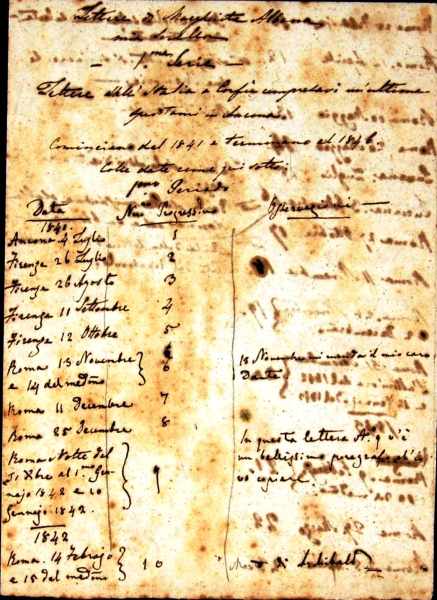 Lettere di Margherita Albana
1.ma Serie
Lettere dall'Italia a Corfù comprese in ultimo
in Ancona
Cominciano del 1841 e terminano al 1846
Colle date come qui sotto:
p.mo Periodo
Data Num. Progressivo Osservazioni
1841
Ancona 4 Luglio 1
Firenze 26 Luglio 2
Firenze 26 Agosto 3
Firenze 11 Settembre 4
Firenze 12 Ottobre 5
Roma 13 Novembre
e 14 del med.mo 6
13 Novembre mi manda il mio caro
Dante
Roma 11 Decembre 7
Roma 25 Decembre 8
Roma Notte del
31 Xbre al 1.mo Gen
najo 1842 e 10
Gennajo 1842. 9
In questa lettera N. 9 v'è
un bellissimo paragrafo ch'è
copiare.
1842
Roma. 14 Febrajo
e 15 del med.mo 10
di